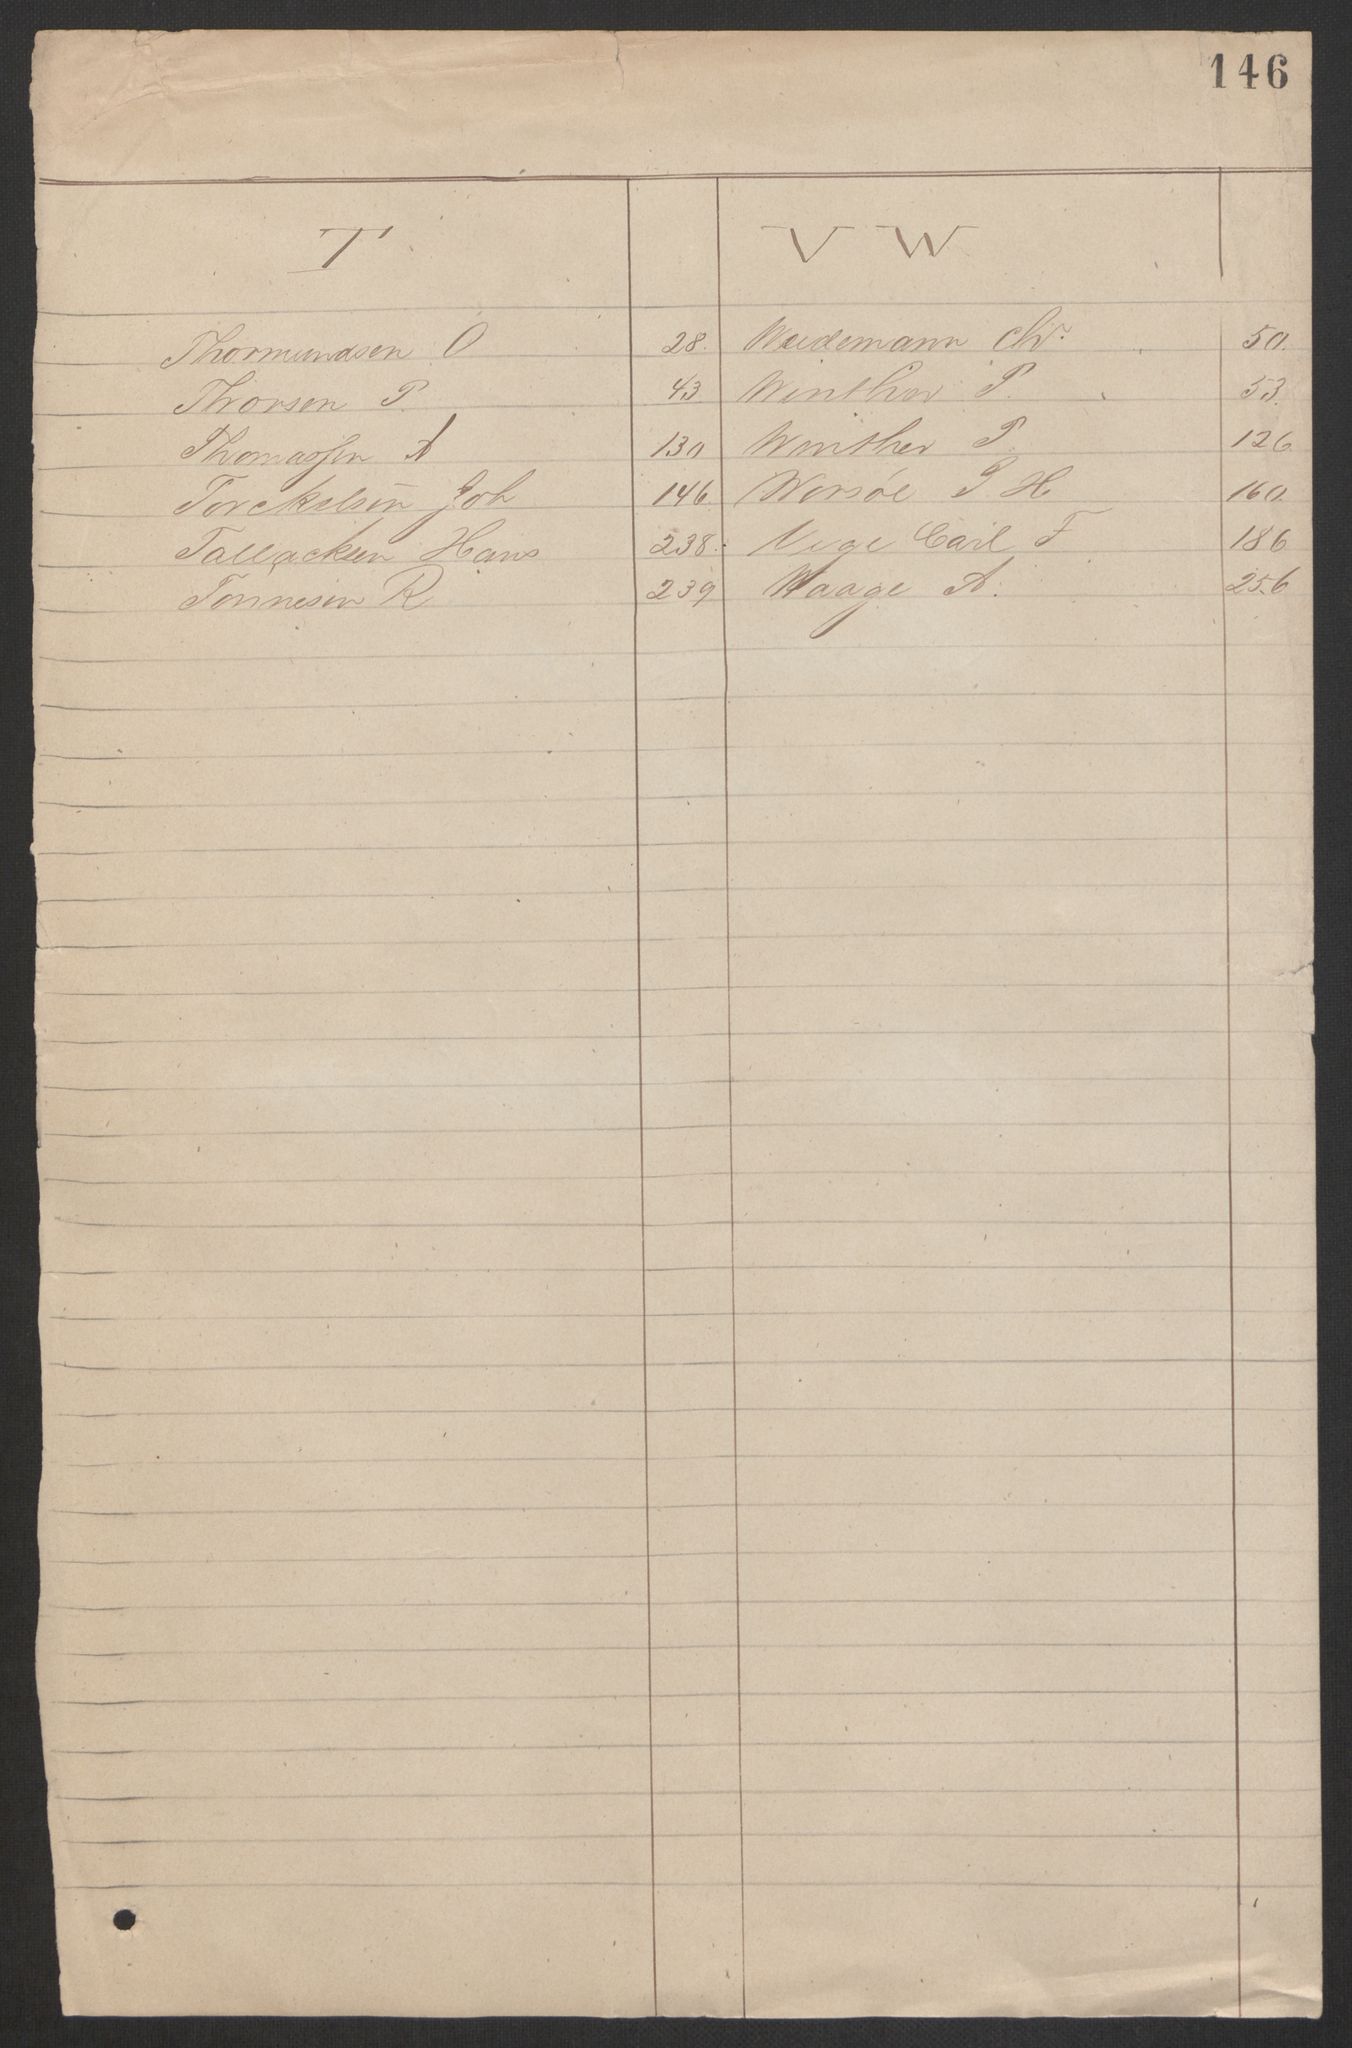 146
T
Thormundsen O 28.
Thorsen P. 43
Thomassen A 130
Torckelsen Joh 146.
Tallacksen Hans 238.
Tønnesen R 239
V W
Weedemann Chr. 50.
Winther P. 53.
Winther P. 126
Worsöe P. H 160.
Vege Carl F 186
Waage A. 256